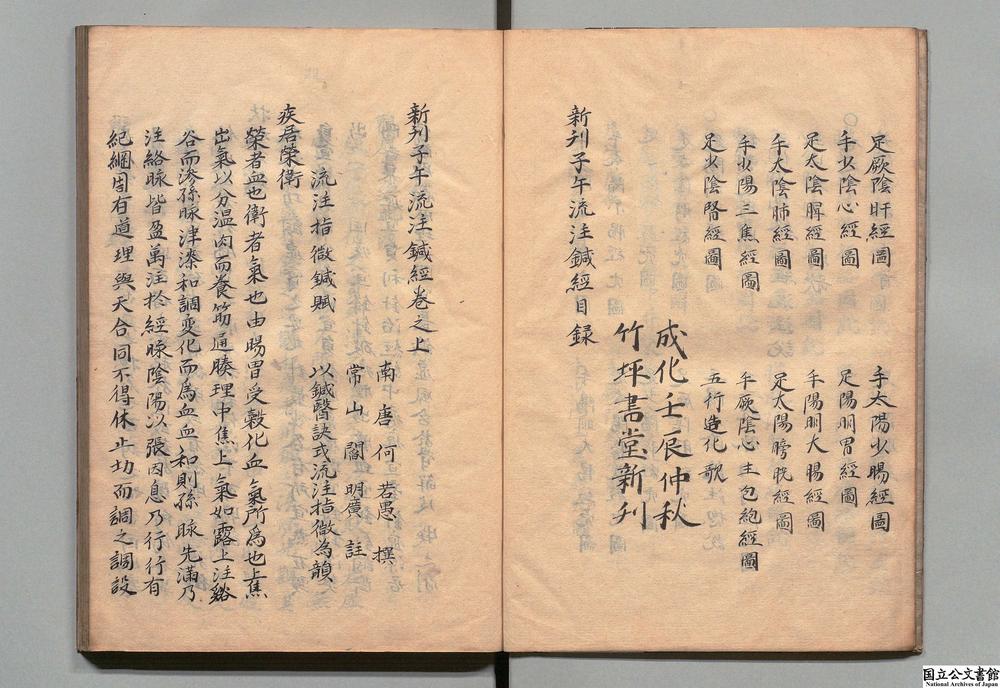 足厥陰肝經圖　手太陽少腸經圖
手少陰心經圖　足陽明胃經圖
足太陰脾經圖　手陽明大腸經圖
手太陰肺經圖　足太陽膀胱經圖
手少陽三焦經圖　手厥陰心主包絡經圖
足少陰腎經圖　五行造化歌
成化壬辰仲秋
竹坪書堂新刋
新刋子午流注鍼經目録
新刋子午流注鍼經卷之上
南唐何若愚撰
常山閻明廣註
流注指微鍼賦　以鍼醫訣式流注指微為韻
疾居榮衛
榮者血也衛者氣也由腸胃受穀化血氣所為也上焦
出氣以分温肉而養筋通腠理中焦上氣如露上注谿
谷而滲孫脉津液和調變化而為血血和則孫脉先滿乃
注絡脉皆盈萬注於經脉陰陽以張因息乃行行有
紀綱周有道理與天合同不得休止切而調之調設
国立公文書館
National Archives of Japan